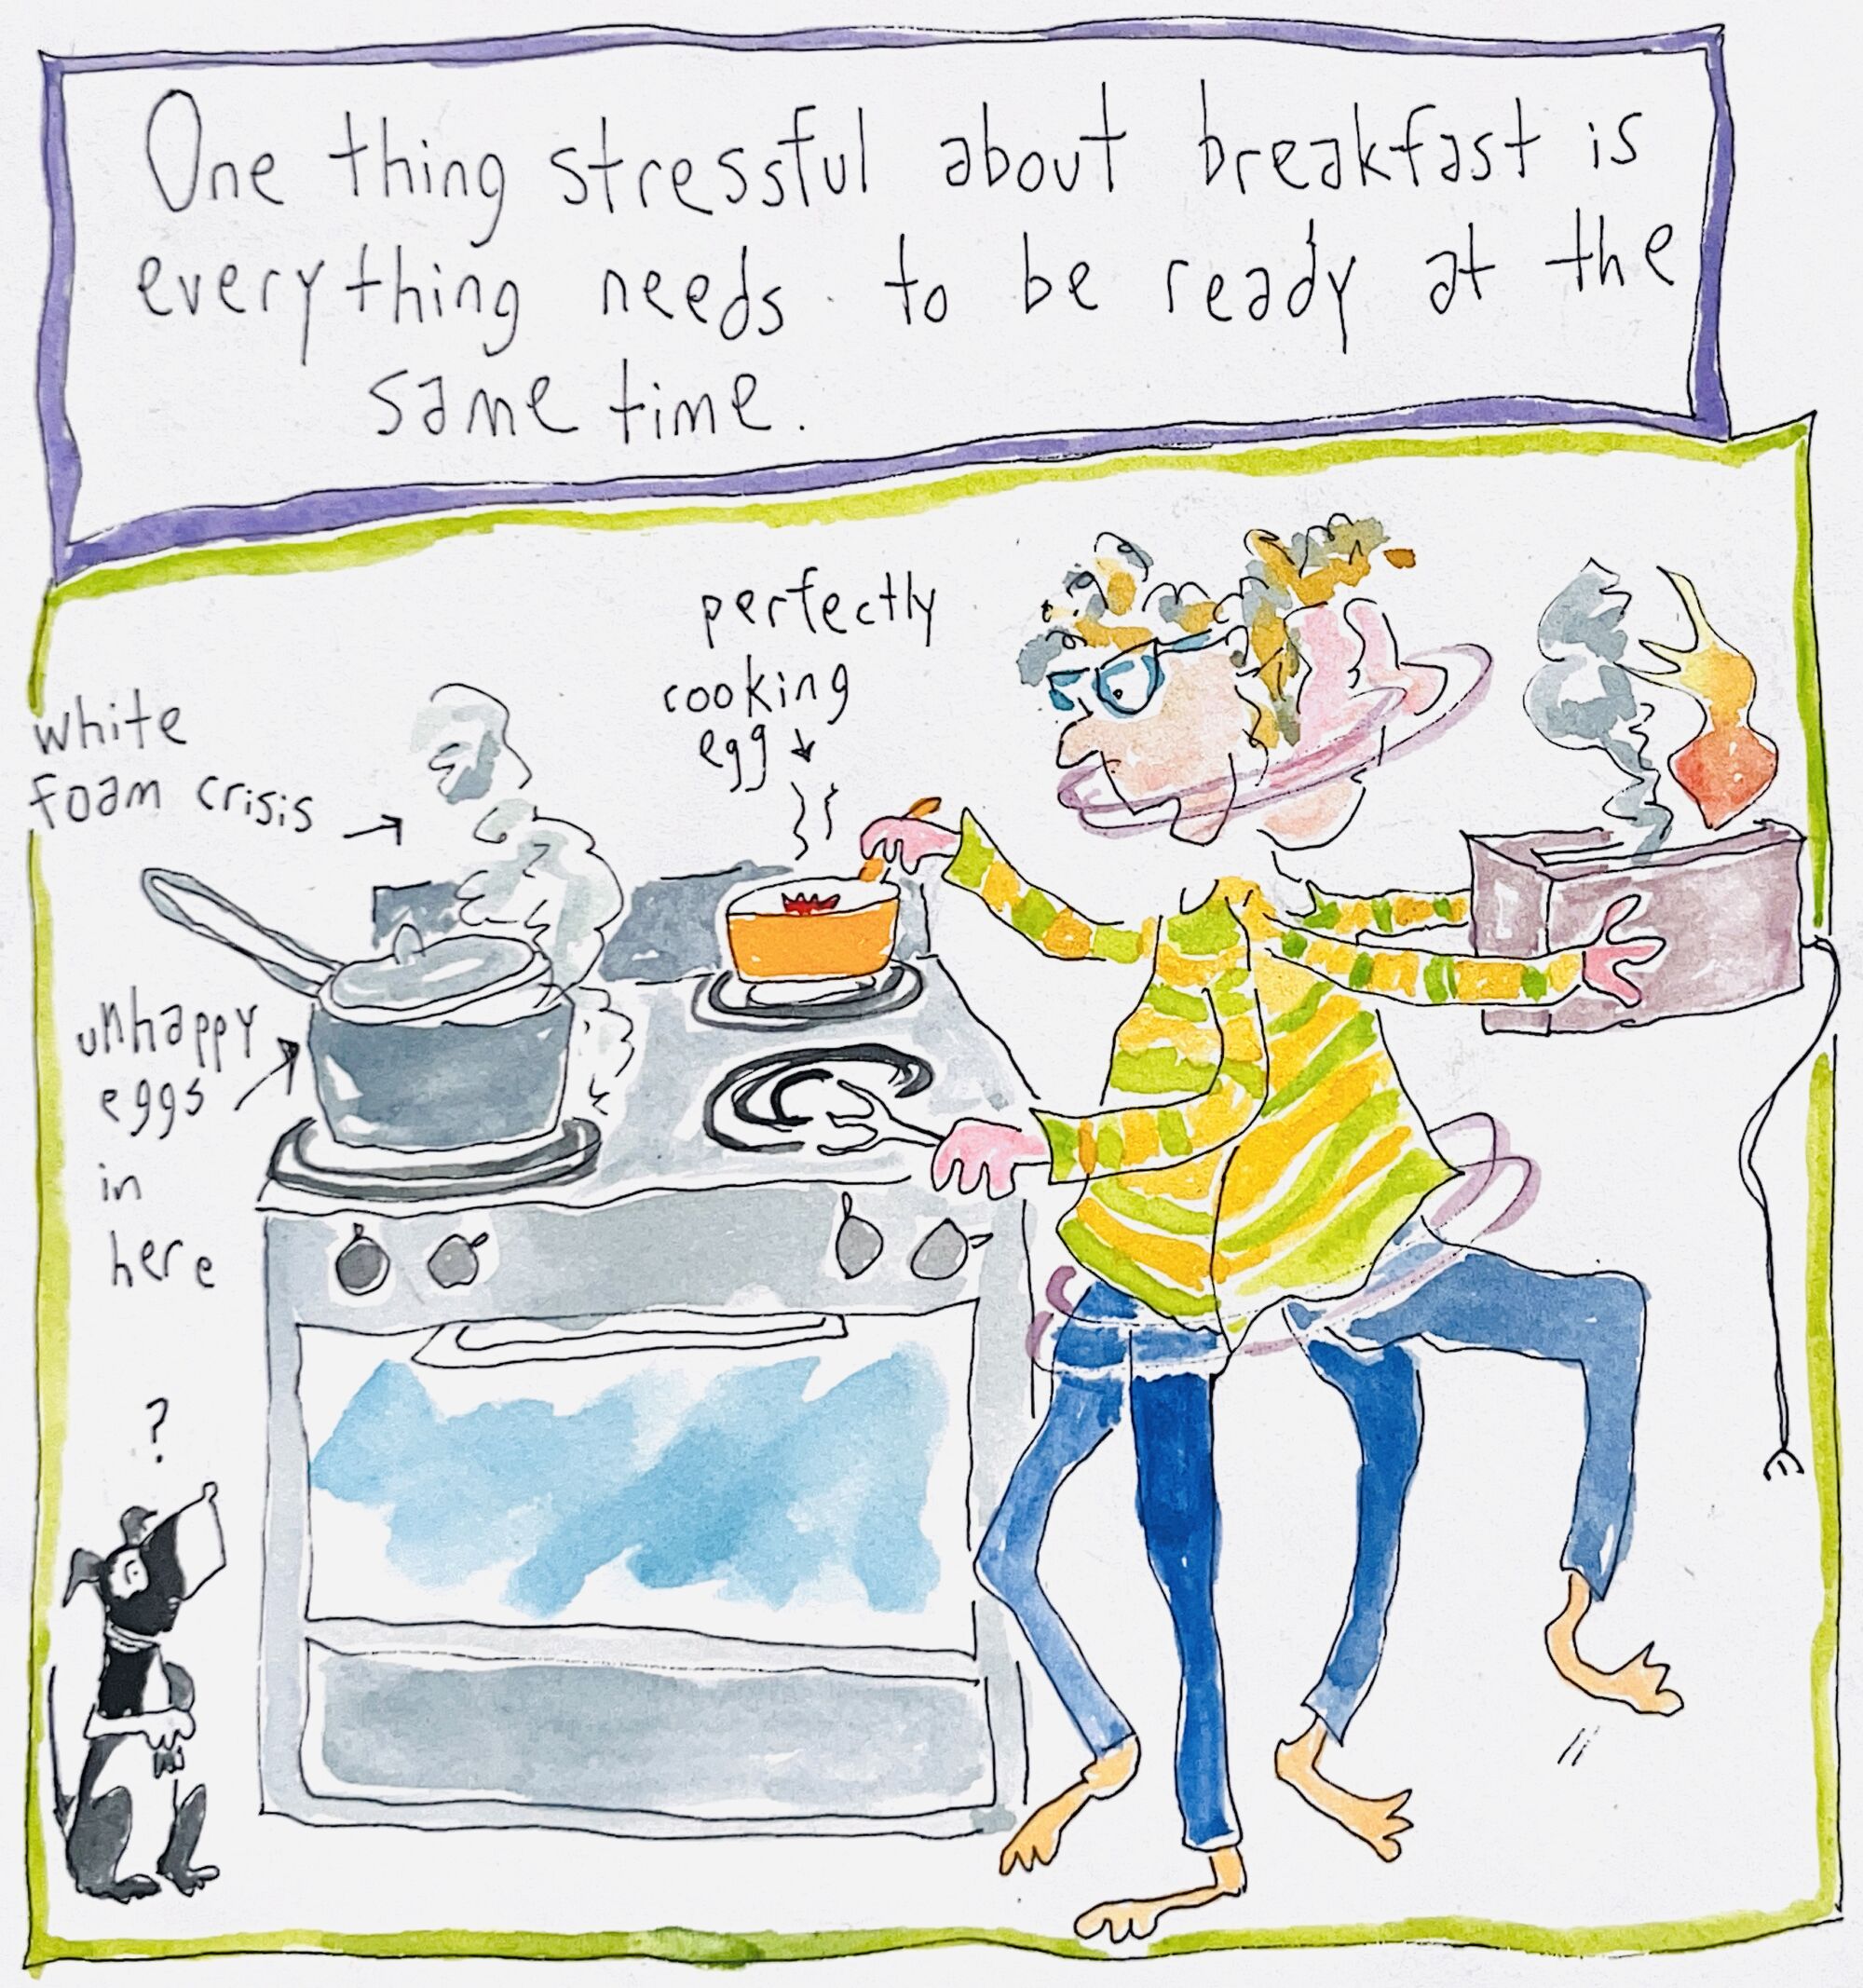 One thing stressful about breakfast is
everything needs to be ready at the
same time.
perfectly
cooking
egg
white
foam crisis
unhappy
eggs
in
here
?